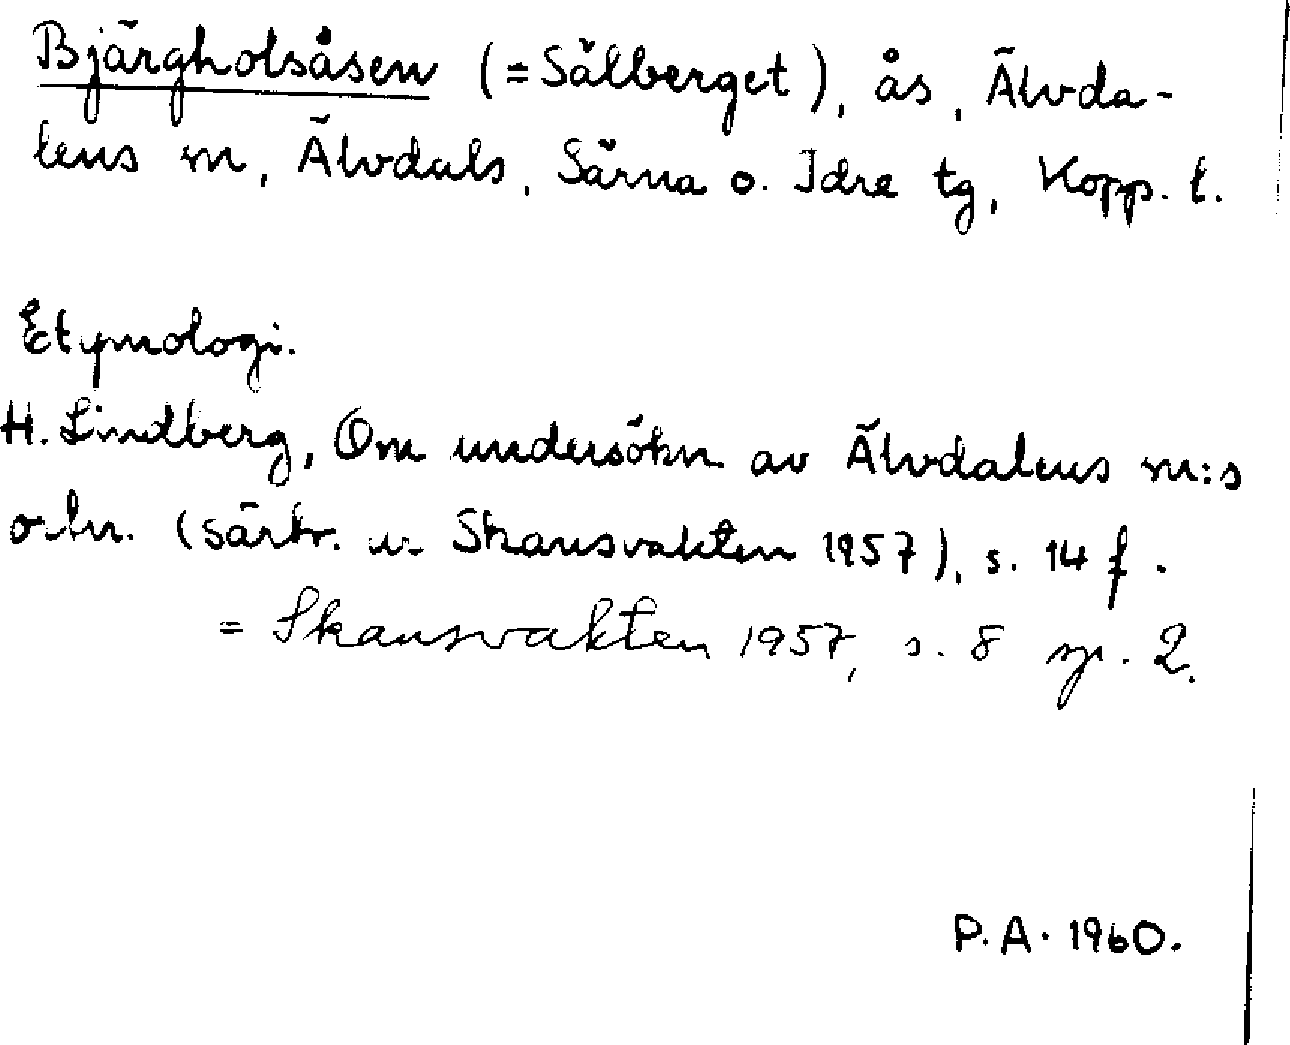 Bjärgholsåsen (= Sälberget), ås, Älvda-
lens m, Älvdals, Särna o. Idre tg, Kopp. l.
Etymologi.
H. Lindberg, Om undersökn av Älvdalens m:s
o-bn. (särtr. ur Skansvakten 1957), s. 14 f.
= Skansvakten 1957, s. 8 sp. 2.
P. A. 1960.